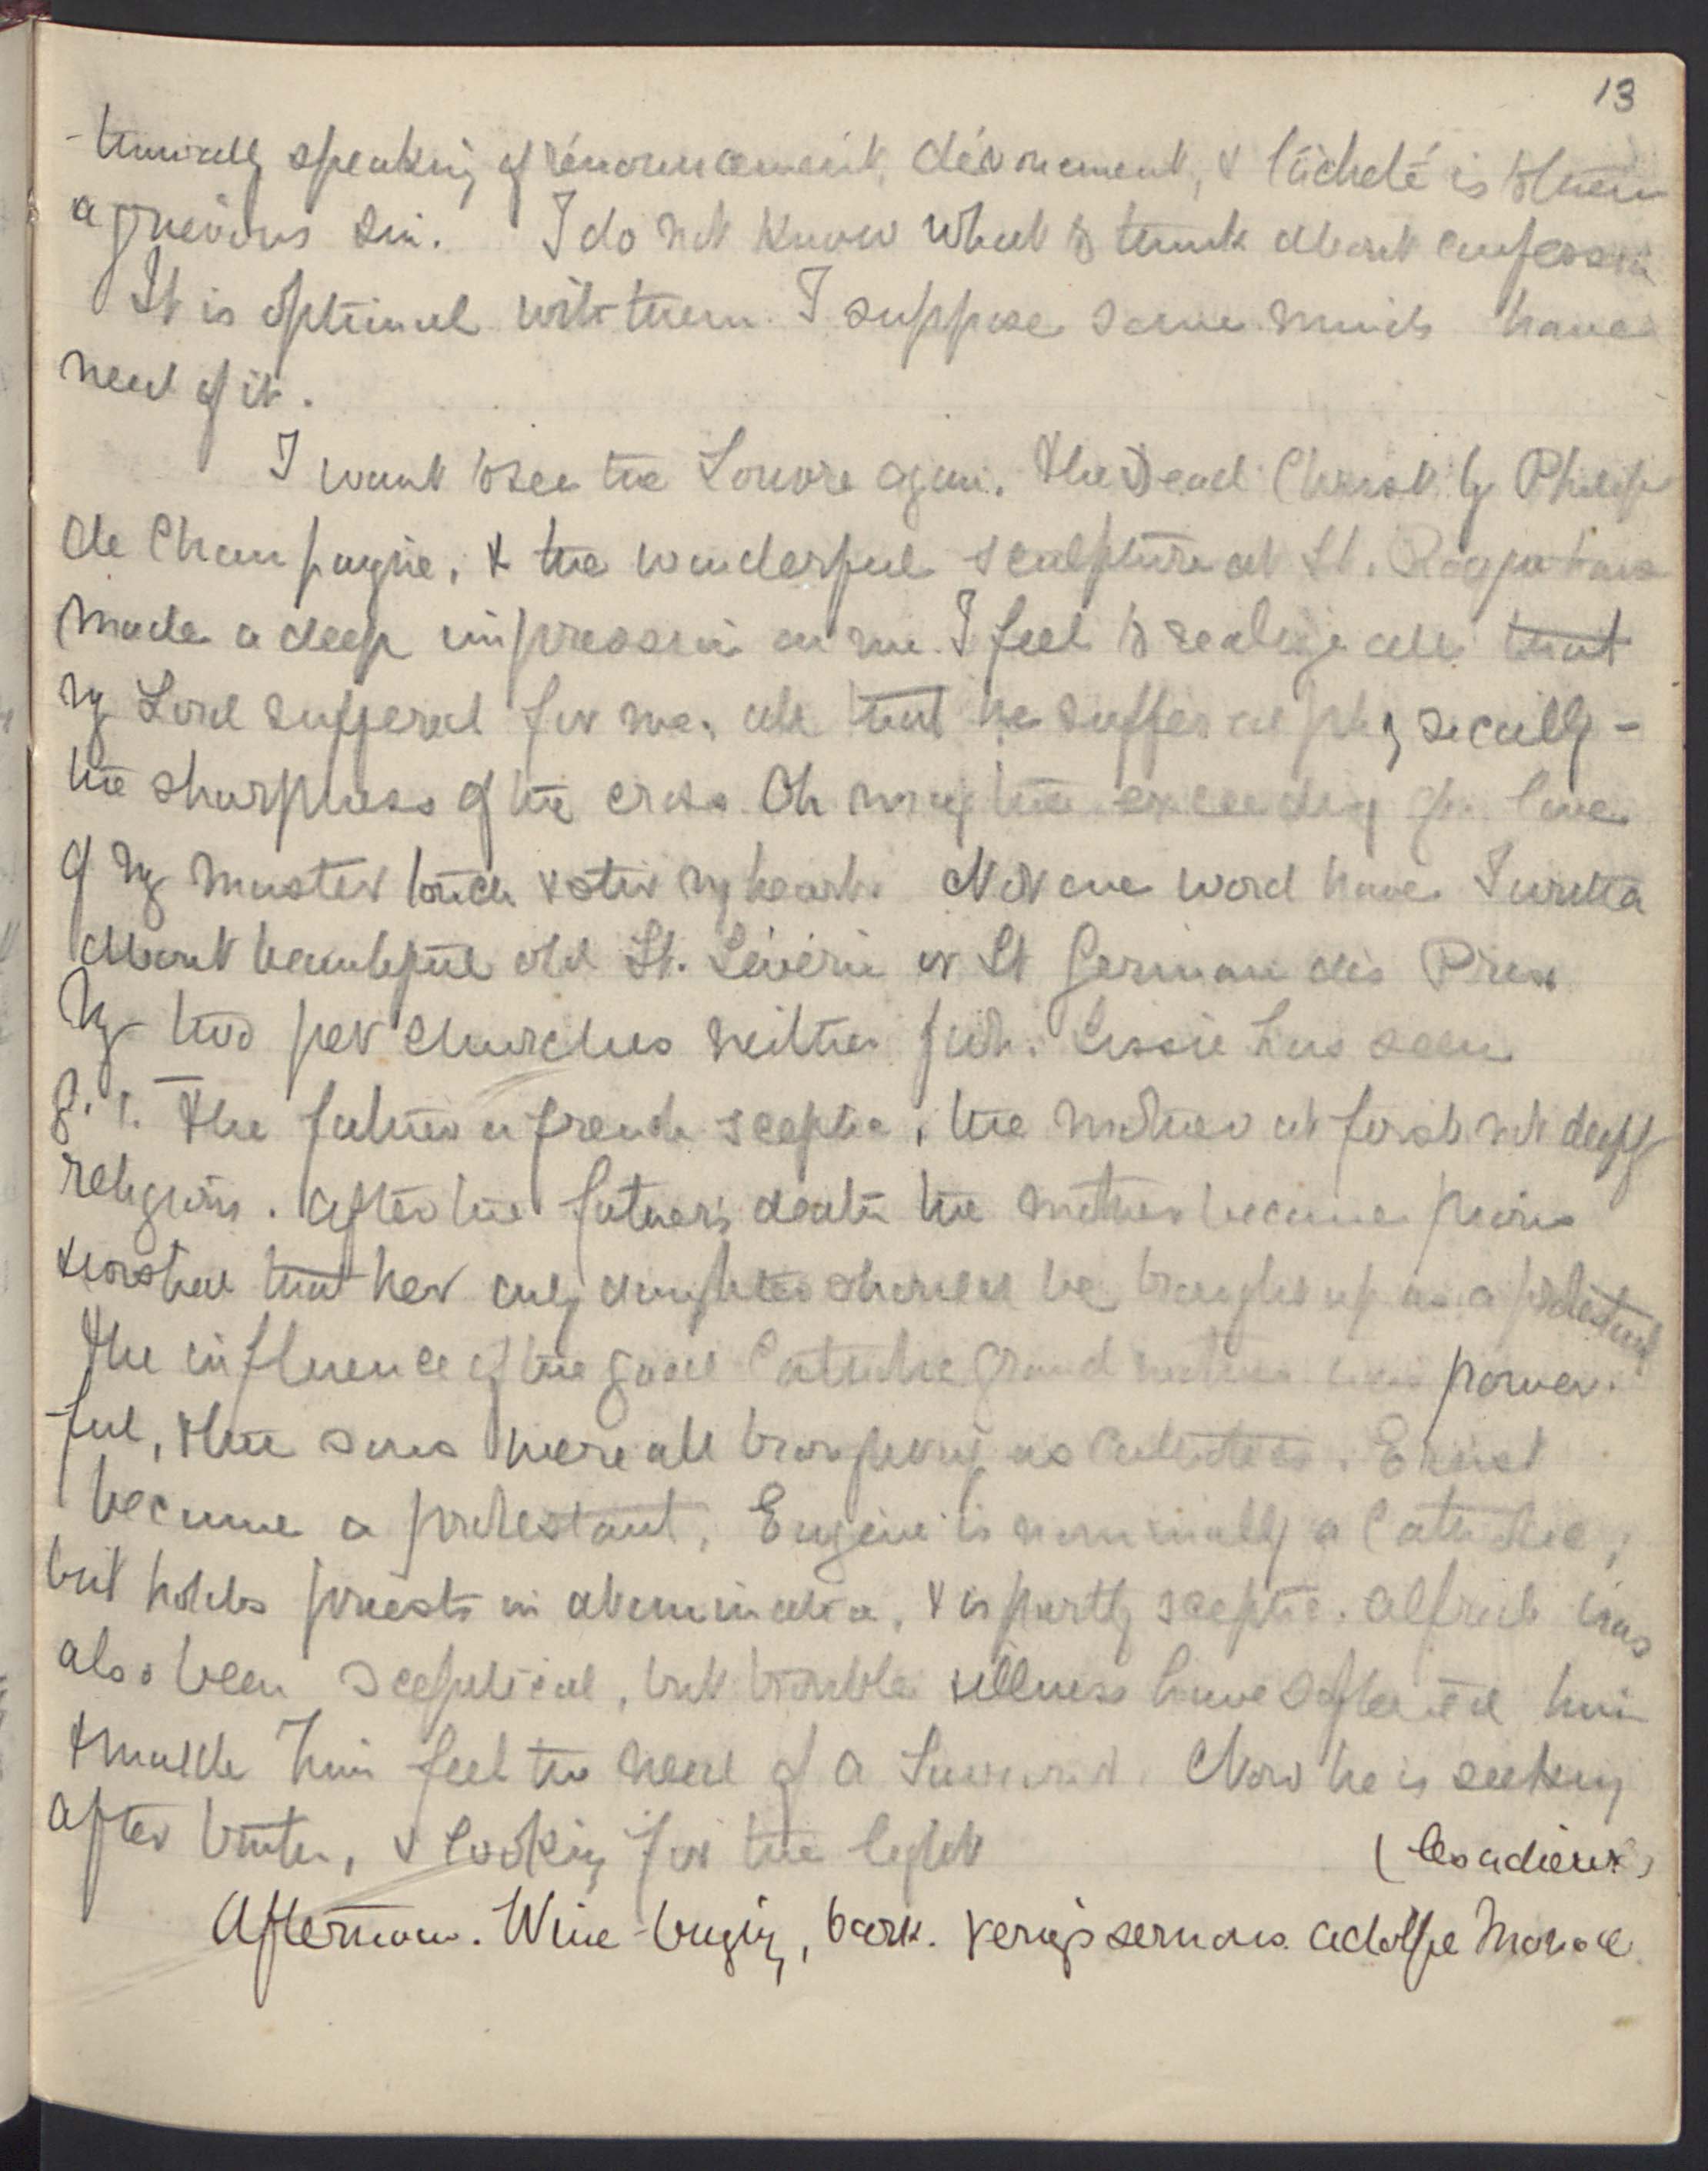 13
-tinually speaking of renouncement, dévouement, & lâcheté is to them
a grievous sin. I do not know what to think about confession
It is optional with them. I suppose some minds have
need of it.
I want to see the Louvre again. The Dead Christ by Philippe
de Champagne, & the wonderful sculpture at St. have
made a deep impression on me. I feel to realize all that
my Lord suffered for me, all that he suffered physically -
the sharpness of the cross. Oh may the exceeding gr. love
of my Master touch & stir my heart. Not one word have I written
about beautiful old St. Séverin or St Germain des Pres
My two pet churches neither Lissie has seen
The father a french sceptic, the mother at first not deeply
religious. After the father's death the mother became pious
& wished that her only daughter should be brought up as a protestant
The influence of the good Catholic Grandmother was power-
-ful, & the sons were all brought up as Catholics. Ernest
became a protestant, Eugène is nominally a Catholic,
but holds priests in abomination, & is partly sceptic. Alfred has
also been sceptical, but trouble & illness have softened him
& made him feel the need of a Saviour. Now he is seeking
after truth, & looking for the light
(les adieux)
Afternoon. Wine-buying, bark. sermons. Adolphe Monod